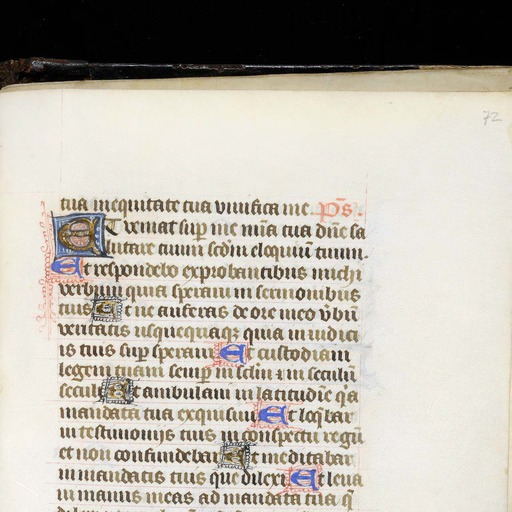 72
tua inequitate tua vivifica me. p̄s.
Et veniat sup̄ me mīa tua dn̄e sa
lutare tuum scdm̄ eloquiū tuum.
Et respondebo exprobantibus michi
verbum quia speravi in sermonibus
tuis Et ne auferas de ore meo v̄bū
veritatis usquequaq̄ quia in iudici
is tuis sup̄ speravi Et custodiam
legem tuam semp̄ in sc̄lm ⁊ in seculū
seculi Et ambulam in latitudīe q̄a
mandata tua exquisivi Et loq̄bar
in testimonijs tuis in conspectu regū
et non confundebar Et meditabar
in mandatis tuis que dilexi Et leva
vi manus meas ad mandata tua q̄